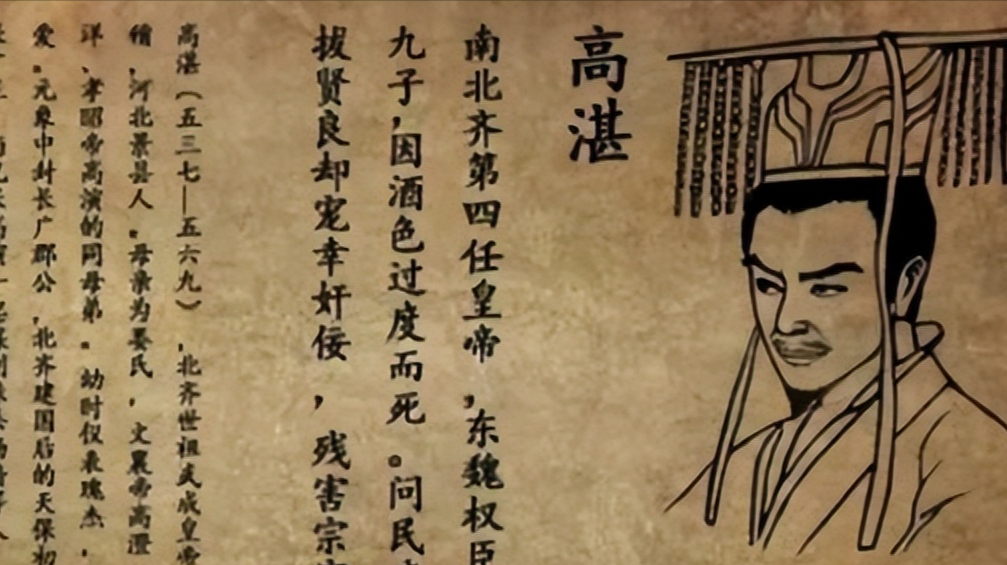 高湛
南北齐第四任皇帝，东魏权臣
九子，因酒色过度而死。问民
拔贤良却宠幸奸佞，残害宗
高湛（五三七—五六九），北齐世祖武成皇帝
蓨，河北景县人。母亲为娄氏，文襄帝高澄
洋、孝昭帝高演的同母弟。幼时仪表瑰杰，
爱。元象中封长广郡公，北齐建国后的天保初